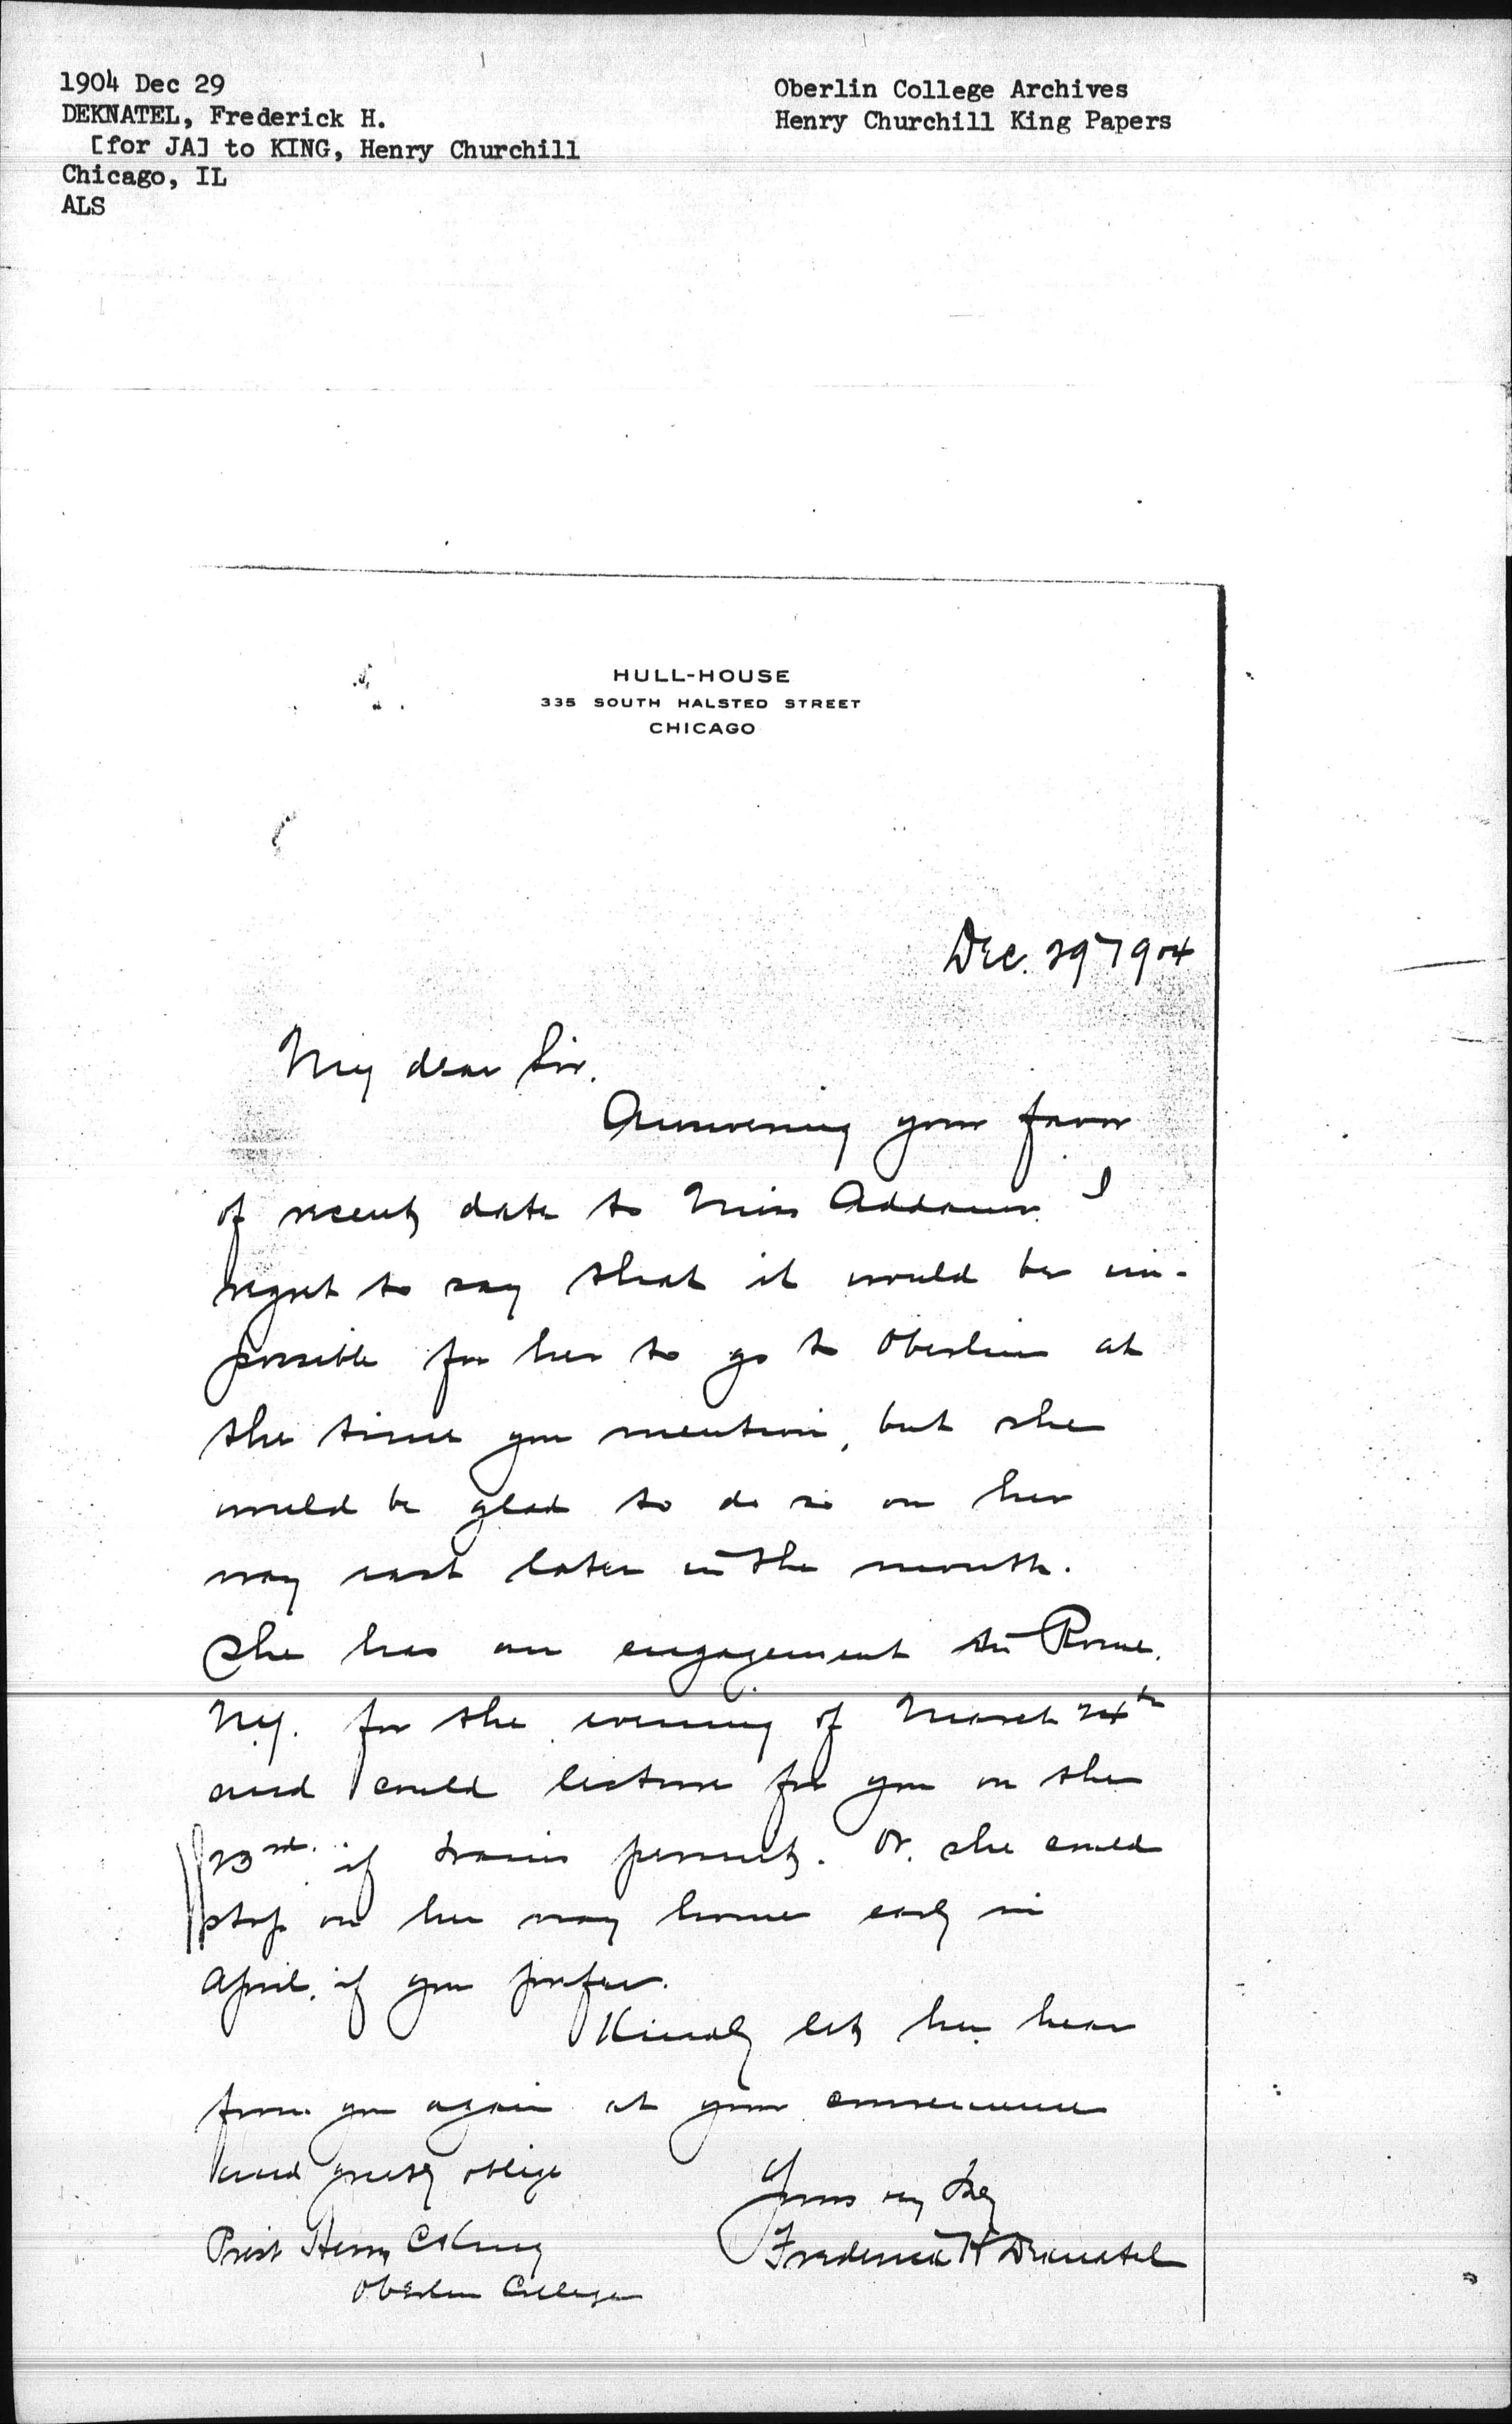 1904 Dec 29
DEKNATEL, Frederick H.
[for JA] to KING, Henry Churchill
Chicago, IL
ALS
Oberlin College Archives
Henry Churchill King Papers
HULL-HOUSE
335 SOUTH HALSTED STREET
CHICAGO
Dec. 29 1904
My dear Sir.
Answering your favor
of recent date to Miss Addams. I
regret to say that it would be im-
possible for her to go to Oberlin at
the time you mention, but she
would be glad to do so on her
way east later in the month.
She has an engagement in Rome.
N.Y. for the evening of March 24th
and could lecture for you on the
23rd. if trains permit. Or. she could
stop on her way home early in
April. if you prefer.
Kindly let her hear
from you again at your convenience
and greatly oblige
Yours very truly
Frederick H Deknatel
Prest Henry C King
Oberlin College